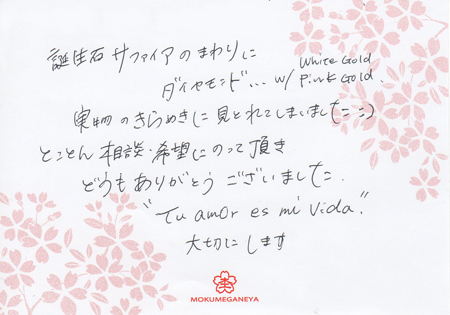 誕生石サファイアのまわりに
White Gold
ダイヤモンド... w/ Pink Gold.
実物のきらめきに見とれてしまいました :)
とことん相談・希望にのって頂き
どうもありがとうございました.
"Tu amor es mi vida."
大切にします
MOKUMEGANEYA